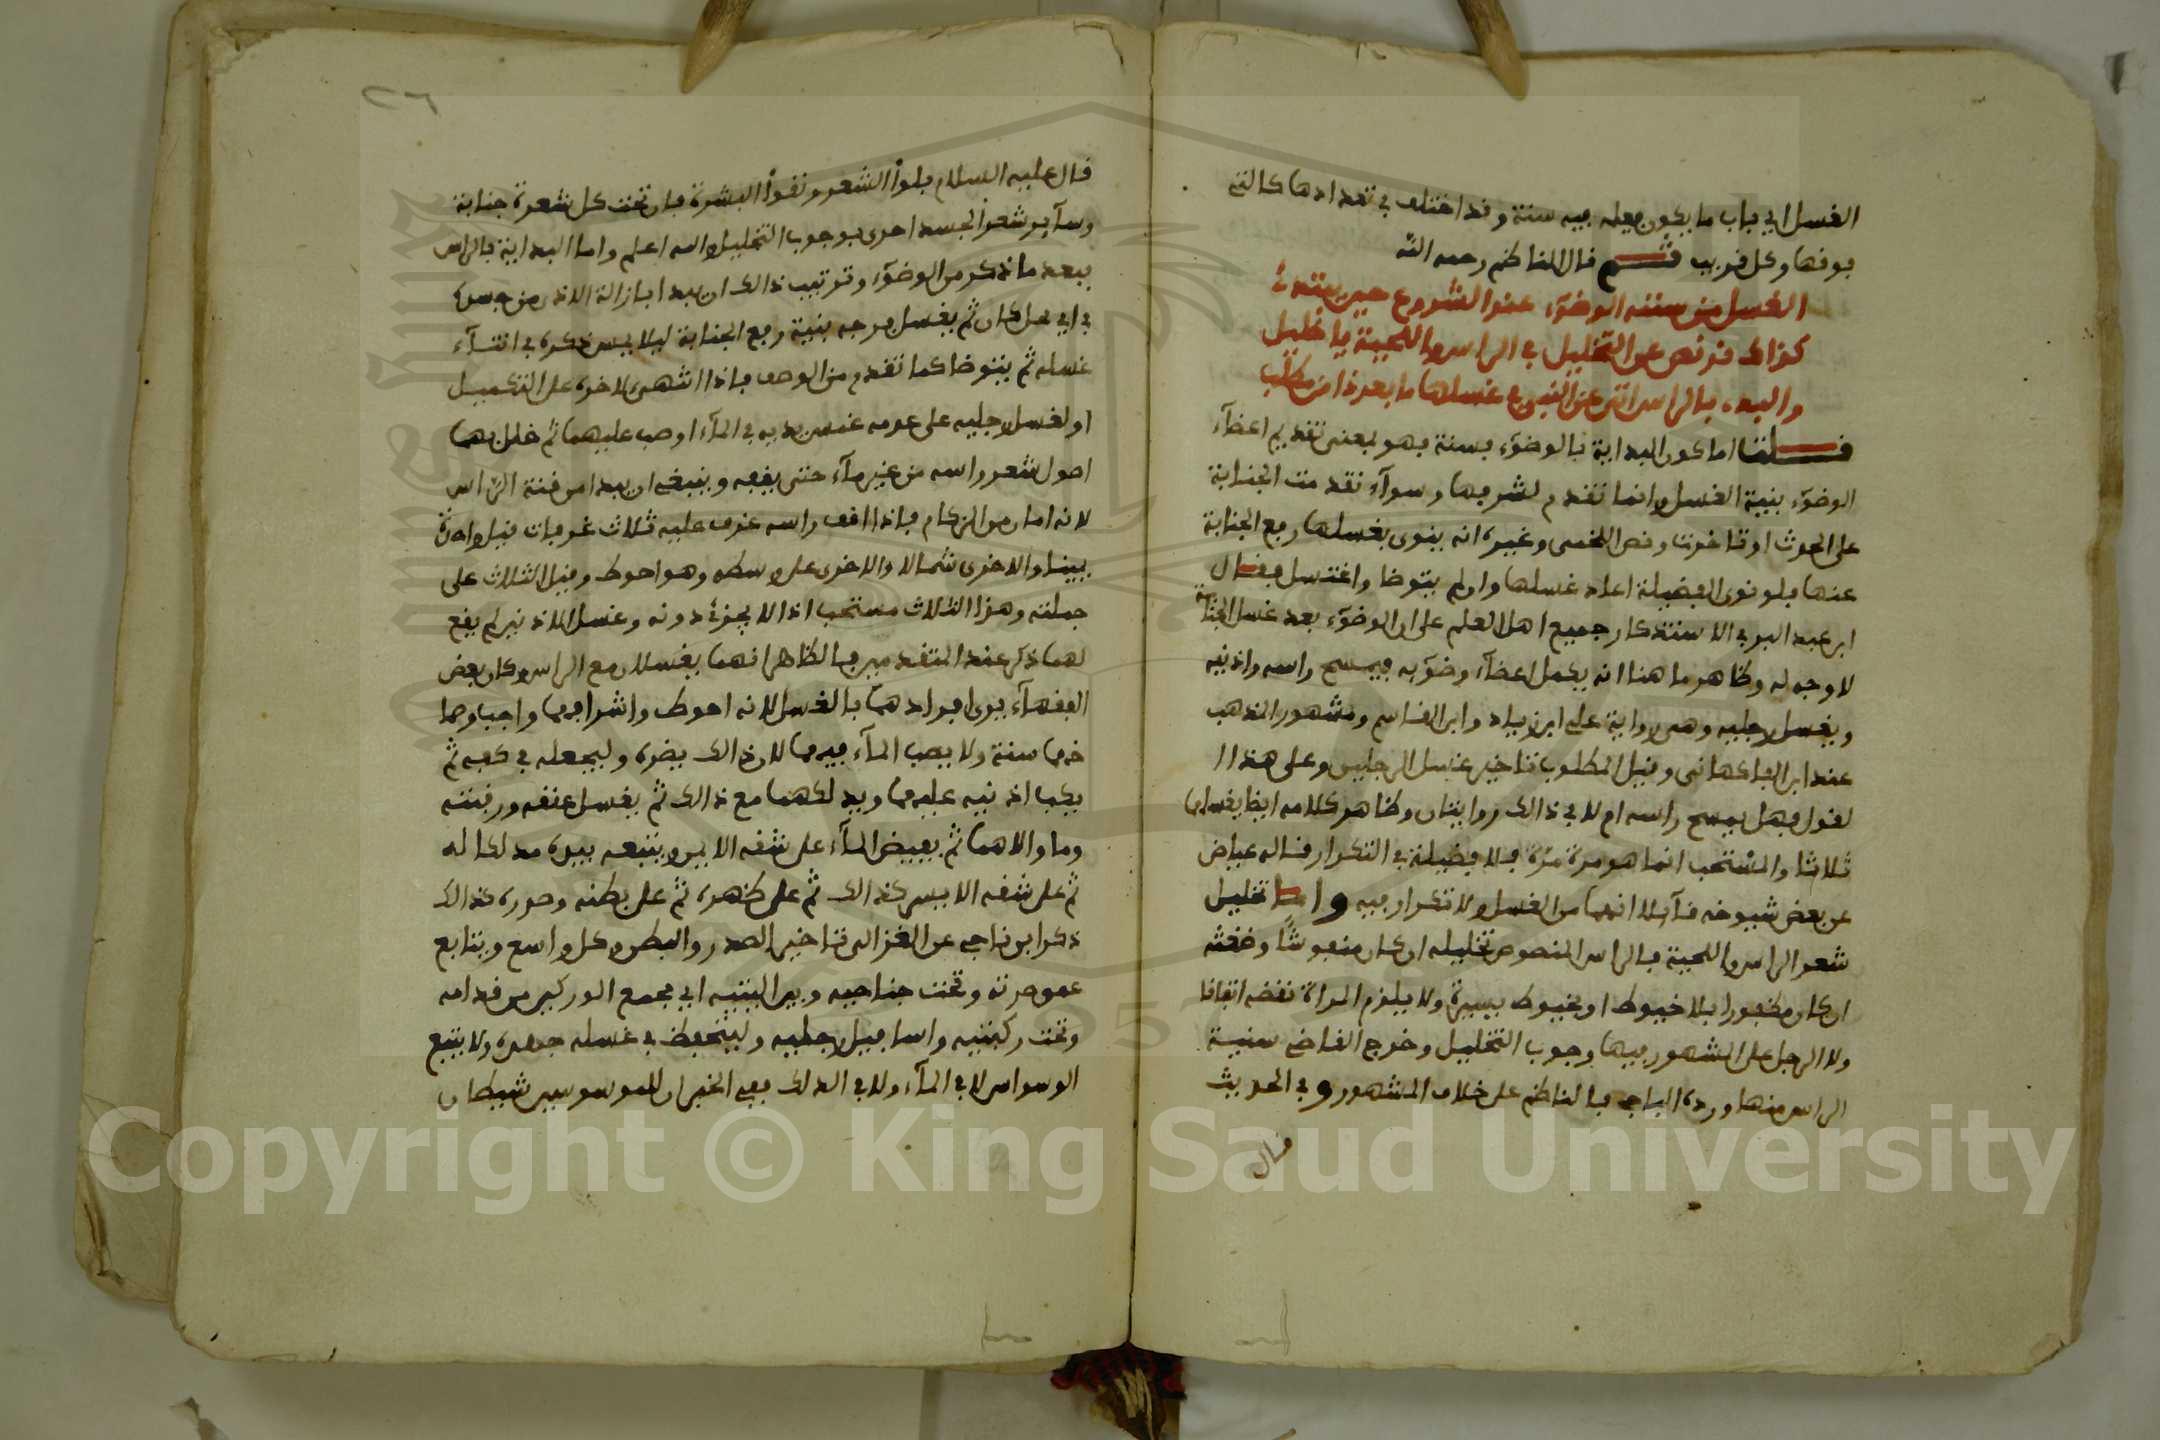 الغسل اي باب ما يكون فعله فيه سنة وقد اختلف في تعدادها كالتي
فوقها وكل قريب ثم قال الناظم رحمه الله
الغسل من سننه الوضوء عند الشروع حين يبتدئ
كذاك قد نص عن التخليل في الراس واللحية يا خليل
والبدء بالراس اتى عن النبي غسلها ما بعد ذا من مطلب
قلت اما كون البداية بالوضوء بسنة فهو بمعنى تقديم اعضاء
الوضوء بنية الغسل وانما تقدم لشرفها وسواء تقدمت الجنابة
على الحدث او تاخرت ونص اللخمي وغيره انه ينوي بغسلها رفع الجنابة
عنها فلو نوى الفضيلة اعاد غسلها وان لم يتوضا واغتسل فقال
ابن عبد البر في الاستذكار جميع اهل العلم على ان الوضوء بعد غسل الجنابة
لا وجه له وظاهر ما هنا انه يكمل اعضاء وضوءه فيمسح راسه واذنيه
ويغسل رجليه وهي رواية علي ابن زياد وابن القاسم ومشهور المذهب
عند ابن الفاكهاني وقيل المطلوب تاخير غسل الرجلين وعلى هذا ا
لقول فهل يمسح راسه ام لا في ذالك روايتان وظاهر كلامه ايضا يغسلها
ثلاثا والمستحب انما هو مرة مرة فلا فضيلة في التكرار قاله عياض
عن بعض شيوخه قائلا انها من الغسل ولا تكرار فيه واما تخليل
شعر الراس واللحية فالراس المنصوص تخليله ان كان منفوشا وضغثه
ان كان مظفورا بلا خيوط او بخيوط يسيرة ولا يلزم المراة نقضه اتفاقا
ولا الرجل على المشهور فيها وجوب التخليل وخرج القاضي سنية
الراس منها ورده الباجي فالناظم على خلاف المشهور وفي الحديث
قال
٢٦
قال عليه السلام بلوا الشعر ونقوا البشرة فان تحت كل شعرة جنابة
وسائر شعر الجسد احرى بوجوب التخليل والله اعلم واما البداية بالراس
فبعد ما ذكر من الوضوء وترتيب ذالك ان يبدا بازالة الاذى من جسده
في اي محل كان ثم يغسل فرجه بنية رفع الجنابة ليلا يمس ذكره في اثناء
غسله ثم يتوضا كما تقدم من الوصف فاذا انتهى لاخره على التكميل
او لغسل رجليه على عدمه غمس يديه في الماء او صب عليهما ثم خلل بهما
اصول شعر راسه من غير ماء حتى يفقه وينبغي ان يبدا من قنة الراس
لانه امان من الزكام فاذا افقه راسه غرف عليه ثلاث غرفات قيل واحدة
يمينا والاخرى شمالا والاخرى على وسطه وهو احوط وقيل الثلاث على
جملته وهذا الثلاث مستحب اذ لا يجزئ دونه وغسل الاذنين لم يقع
لهما ذكر عند المتقدمين فالظاهر انهما يغسلان مع الراس وكان بعض
الفقهاء يرى افرادهما بالغسل لانه احوط
سنة ولا يصب الماء فيهما لان ذالك يضره وليجعله في كفه ثم
يكب اذنيه عليهما ويدلكهما مع ذالك ثم يغسل عنقه ورقبته
وما والاهما ثم يفيض الماء على شقه الايمن ويتبعه بيده مدلكا له
ثم على شقه الايسر كذالك ثم على ظهره ثم على بطنه وصدره كذالك
ذكر ابن ناجي عن الغزالي تاخير الصدر والبطن وكل واسع ويتابع
عمق سرته وتحت جناحيه وبين اليتيه اي مجمع الوركين من قدامه
وتحت ركبتيه واسافيل رجليه وليتحفظ في غسله جهده ولا يتبع
الوسواس لا في الماء ولا في الدلك ففي الخبر ان للموسوسين شيطان
Copyright © King Saud University